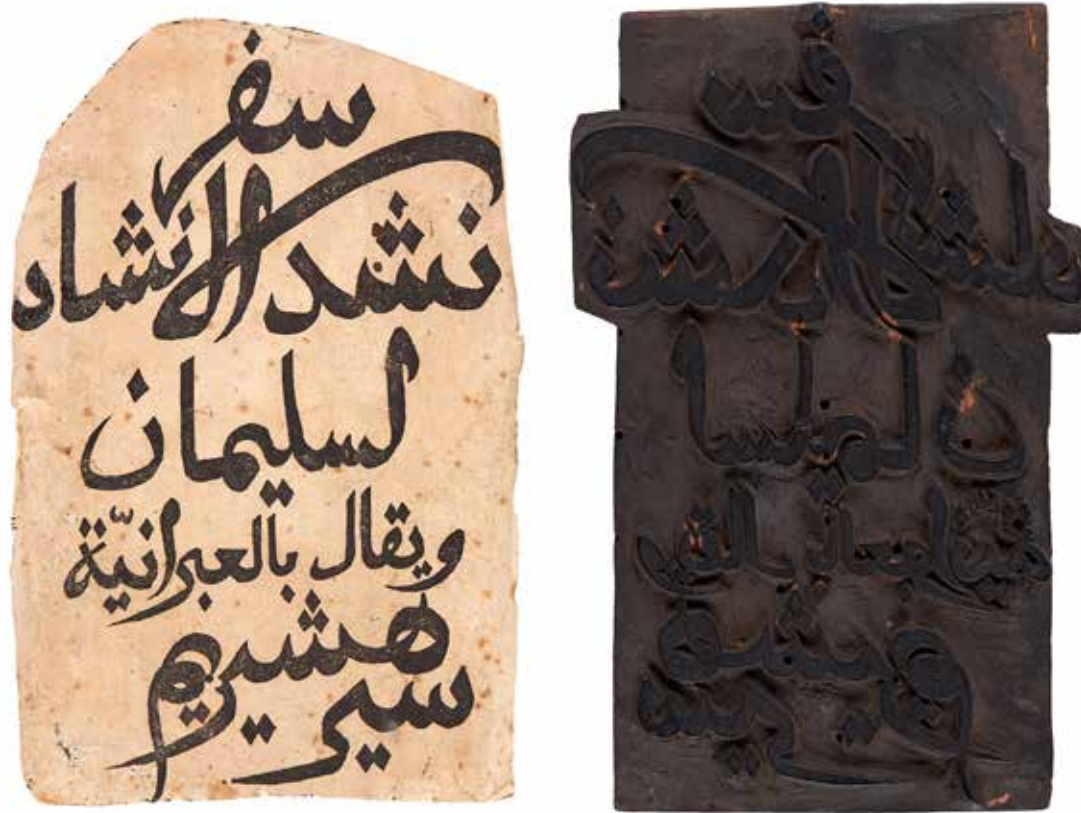 سفر
نشد الانشاد
لسليمان
ويقال بالعبرانيّة
سير هشيريم